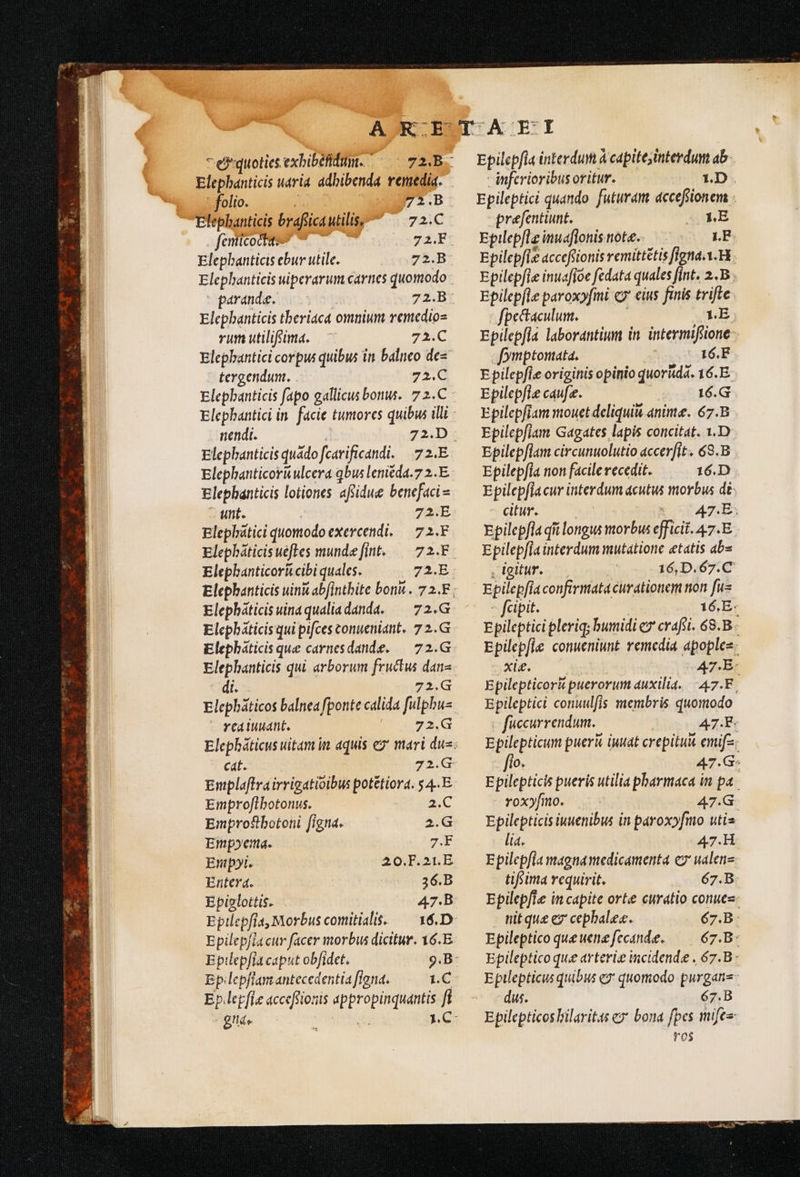 ARETAEI
& quoties exhibẽdum. 72.B
Elephanticis uaria adhibenda remedia.
folio. 72.B
Elephanticis braßica utilis,
72.C
semicocta. 72.F
Elephanticis ebur utile. 72.B
Elephanticis uiperarum carnes quomodo
parandæ. 72.B
Elephanticis theriaca omnium remedio=
rum utilißima. 72.C
Elephantici corpus quibus in balneo de=
tergendum. 72.C
Elephanticis sapo gallicus bonus. 72.C
Elephantici in facie tumores quibus illi
nendi. 72.D
Elephanticis quãdo scarificandi. 72.E
Elephanticorũ ulcera qbus leniẽda. 72.E
Elephanticis lotiones aßiduæ benefaci=
unt. 72.E
Elephãtici quomodo exercendi. 72.F
Elephãticis uestes mundæ sint. 72.F
Elephanticorũ cibi quales. 72.E
Elephanticis uinũ absinthite bonũ. 72.F
Elephãticis uina qualia danda. 72.G
Elephãticis qui pisces conueniant. 72.G
Elephãticis quæ carnes dandæ. 72.G
Elephanticis qui arborum fructus dan=
di. 72.G
Elephãticos balnea sponte calida sulphu=
rea iuuant. 72.G
Elephãticus uitam in aquis & mari du=
cat. 72.G
Emplastra irrigatiõibus potẽtiora. 54.E
Emprosthotonus. 2.C
Emprosthotoni signa. 2.G
Empyema. 7.F
Empyi. 20.F.21.E
Entera. 36.B
Epiglottis. 47.B
Epilepsia, Morbus comitialis. 16.D
Epilepsia cur sacer morbus dicitur. 16.E
Epilepsia caput obsidet. 9.B
Epilepsiam antecedentia signa. 1.C
Epilepsiæ acceßionis appropinquantis si
gna. 1.C
Epilepsia interdum à capite, interdum ab
inferioribus oritur. 1.D
Epileptici quando futuram acceßionem
præsentiunt. 1.E
Epilepsiæ inuasionis notæ. 1.F
Epilepsiæ acceßionis remittẽtis signa. 1.H
Epilepsiæ inuasiõe sedata quales sint. 2.B
Epilepsiæ paroxysmi & eius finis triste
spectaculum. 1.E
Epilepsia laborantium in intermißione
symptomata. 16.F
Epilepsiæ originis opinio quorũdã. 16.E
Epilepsiæ causæ. 16.G
Epilepsiam mouet deliquiũ animæ. 67.B
Epilepsiam Gagates lapis concitat. 1.D
Epilepsiam circunuolutio accersit. 68.B
Epilepsia non facile recedit. 16.D
Epilepsia cur interdum acutus morbus di
citur. 47.E
Epilepsia qñ longus morbus efficit. 47.E
Epilepsia interdum mutatione ætatis ab=
igitur. 16.D.67.C
Epilepsia confirmata curationem non su=
scipit. 16.E
Epileptici pleriq; humidi & craßi. 68.B
Epilepsiæ conueniunt remedia apople=
xiæ. 47.E
Epilepticorũ puerorum auxilia. 47.F
Epileptici conuulsis membris quomodo
succurrendum. 47.F
Epilepticum puerũ iuuat crepituũ emis=
sio. 47.G
Epilepticis pueris utilia pharmaca in pa
roxysmo. 47.G
Epilepticis iuuenibus in paroxysmo uti=
lia. 47.H
Epilepsia magna medicamenta & ualen=
tißima requirit. 67.B
Epilepsiæ in capite ortæ curatio conue=
nit quæ & cephalææ. 67.B
Epileptico quæ uenæ secandæ. 67.B
Epileptico quæ arteriæ incidendæ. 67.B
Epilepticus quibus & quomodo purgan=
dus. 67.B
Epilepticos hilaritas & bona spes mise=
ros